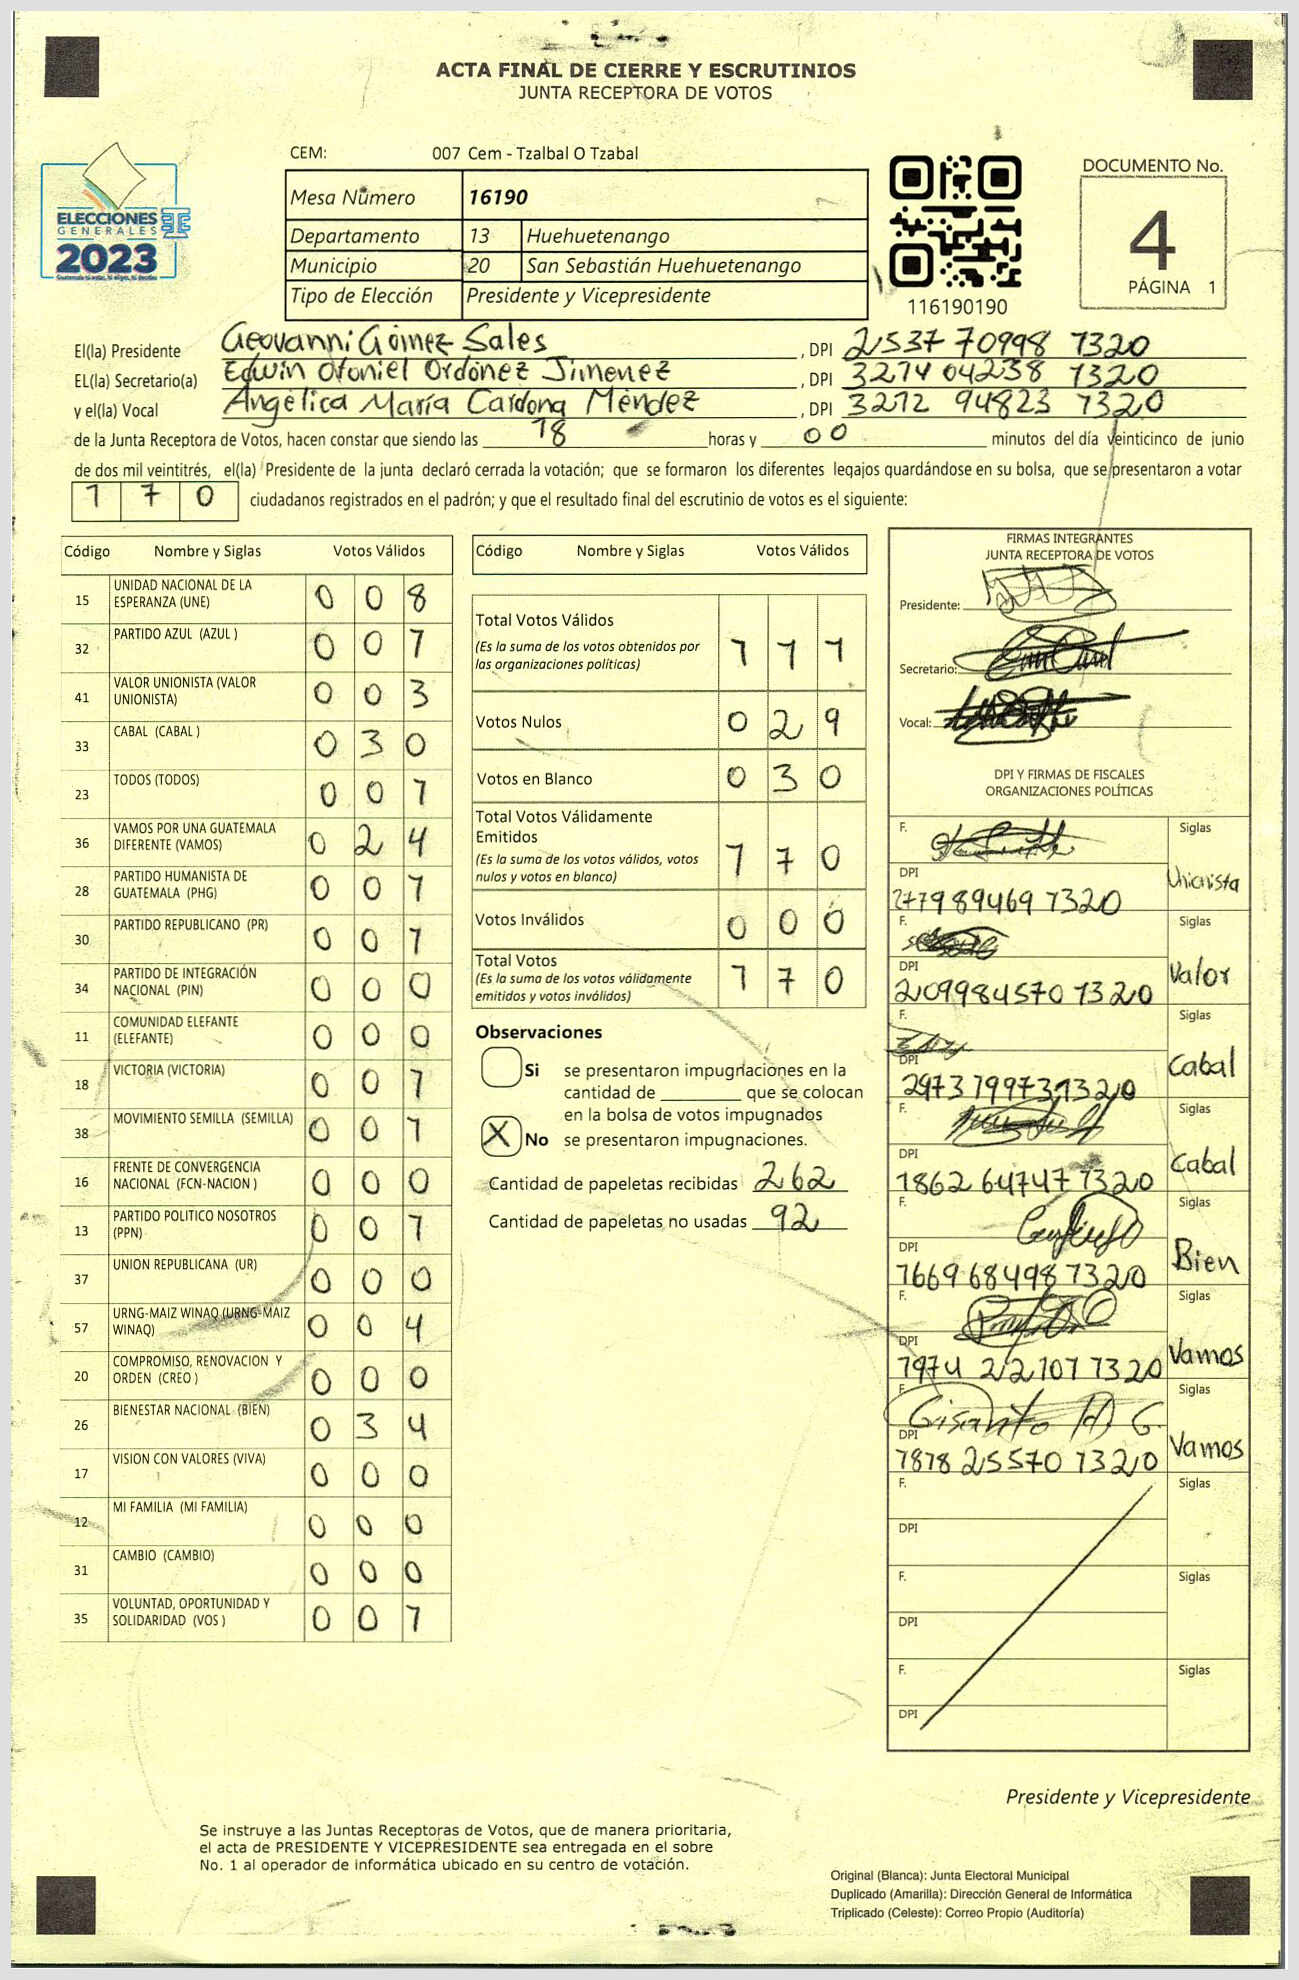 ACTA FINAL DE CIERRE Y ESCRUTINIOS
JUNTA RECEPTORA DE VOTOS
ELECCIONES
GENERALES
2023
CEM: 007 Cem - Tzalbal O Tzabal
Mesa Número 16190
Departamento 13 Huehuetenango
Municipio 20 San Sebastián Huehuetenango
Tipo de Elección Presidente y Vicepresidente
116190190
DOCUMENTO No.
4
PÁGINA 1
El(la) Presidente Geovanni Gómez Sales , DPI 2537 70998 1320
EL(la) Secretario(a) Edwin Otoniel Ordóñez Jimenez , DPI 3274 04238 1320
y el(la) Vocal Angélica María Cardona Méndez , DPI 3272 94823 1320
de la Junta Receptora de Votos, hacen constar que siendo las 18 horas y 00 minutos del día veinticinco de junio
de dos mil veintitrés, el(la) Presidente de la junta declaró cerrada la votación; que se formaron los diferentes legajos quardándose en su bolsa, que se presentaron a votar
1 7 0 ciudadanos registrados en el padrón; y que el resultado final del escrutinio de votos es el siguiente:
Código Nombre y Siglas Votos Válidos
15 UNIDAD NACIONAL DE LA ESPERANZA (UNE) 0 0 8
32 PARTIDO AZUL (AZUL ) 0 0 1
41 VALOR UNIONISTA (VALOR UNIONISTA) 0 0 3
33 CABAL (CABAL ) 0 3 0
23 TODOS (TODOS) 0 0 1
36 VAMOS POR UNA GUATEMALA DIFERENTE (VAMOS) 0 2 4
28 PARTIDO HUMANISTA DE GUATEMALA (PHG) 0 0 1
30 PARTIDO REPUBLICANO (PR) 0 0 1
34 PARTIDO DE INTEGRACIÓN NACIONAL (PIN) 0 0 0
11 COMUNIDAD ELEFANTE (ELEFANTE) 0 0 0
18 VICTORIA (VICTORIA) 0 0 1
38 MOVIMIENTO SEMILLA (SEMILLA) 0 0 1
16 FRENTE DE CONVERGENCIA NACIONAL (FCN-NACION ) 0 0 0
13 PARTIDO POLITICO NOSOTROS (PPN) 0 0 1
37 UNION REPUBLICANA (UR) 0 0 0
57 URNG-MAIZ WINAQ (URNG-MAIZ WINAQ) 0 0 4
20 COMPROMISO, RENOVACION Y ORDEN (CREO ) 0 0 0
26 BIENESTAR NACIONAL (BIEN) 0 3 4
17 VISION CON VALORES (VIVA) 0 0 0
12 MI FAMILIA (MI FAMILIA) 0 0 0
31 CAMBIO (CAMBIO) 0 0 0
35 VOLUNTAD, OPORTUNIDAD Y SOLIDARIDAD (VOS ) 0 0 1
Código Nombre y Siglas Votos Válidos
Total Votos Válidos
(Es la suma de los votos obtenidos por
las organizaciones políticas) 1 1 1
Votos Nulos 0 2 9
Votos en Blanco 0 3 0
Total Votos Válidamente
Emitidos
(Es la suma de los votos válidos, votos
nulos y votos en blanco) 1 7 0
Votos Inválidos 0 0 0
Total Votos
(Es la suma de los votos válidamente
emitidos y votos inválidos) 1 7 0
Observaciones
Si se presentaron impugnaciones en la
cantidad de ________ que se colocan
en la bolsa de votos impugnados
X No se presentaron impugnaciones.
Cantidad de papeletas recibidas 262
Cantidad de papeletas no usadas 92
FIRMAS INTEGRANTES
JUNTA RECEPTORA DE VOTOS
Presidente:
Secretario:
Vocal:
DPI Y FIRMAS DE FISCALES
ORGANIZACIONES POLÍTICAS
F. Siglas
DPI Unionista
2779 89469 1320
F. Siglas
DPI Valor
2099 84570 1320
F. Siglas
DPI Cabal
2973 79973 1320
F. Siglas
DPI Cabal
1862 64747 1320
F. Siglas
DPI Bien
1669 68498 1320
F. Siglas
DPI Vamos
1974 22107 1320
F. Siglas
DPI Vamos
1878 25570 1320
F. Siglas
DPI
F. Siglas
DPI
F. Siglas
DPI
Presidente y Vicepresidente
Se instruye a las Juntas Receptoras de Votos, que de manera prioritaria,
el acta de PRESIDENTE Y VICEPRESIDENTE sea entregada en el sobre
No. 1 al operador de informática ubicado en su centro de votación.
Original (Blanca): Junta Electoral Municipal
Duplicado (Amarilla): Dirección General de Informática
Triplicado (Celeste): Correo Propio (Auditoría)